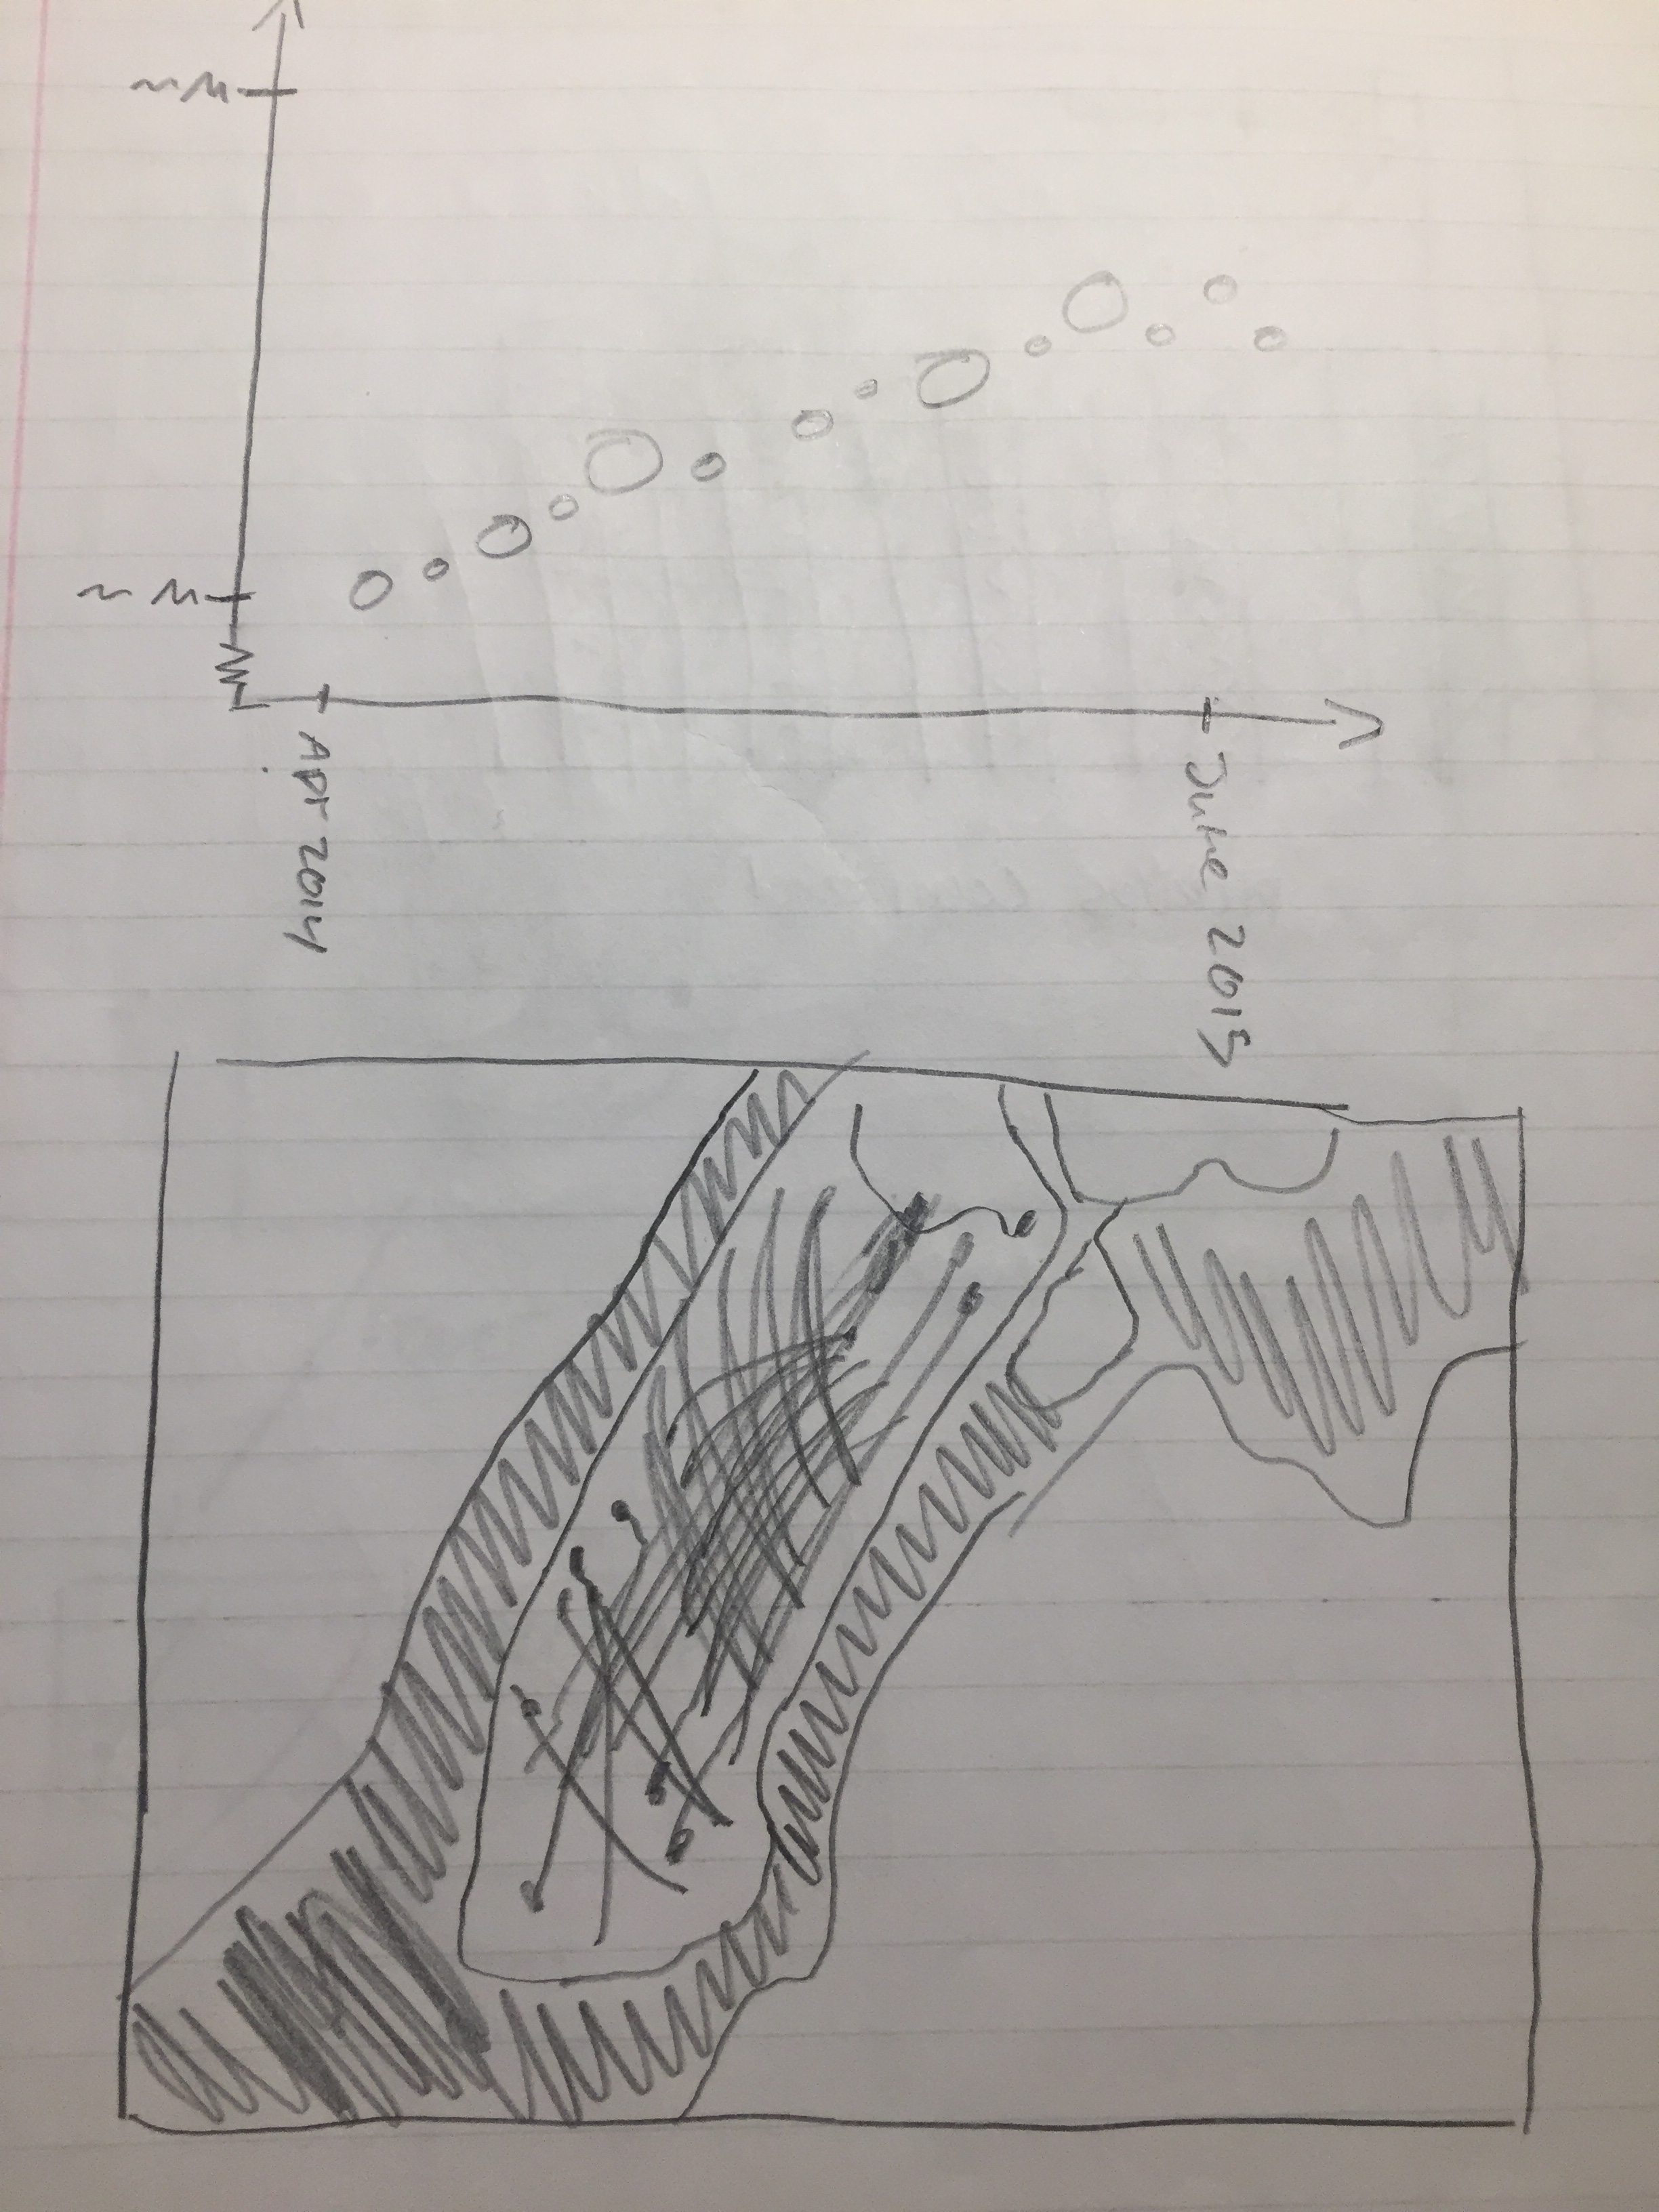 Apr 2014
June 2015